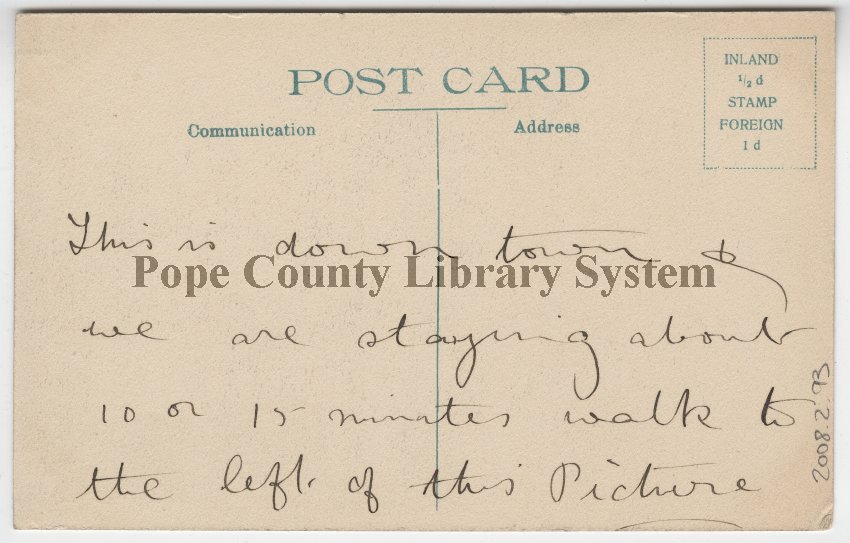 POST CARD
Communication
Address
INLAND
½ d
STAMP
FOREIGN
1 d
This is down town &
Pope County Library System
we are staying about
10 or 15 minutes walk to
the left of this Picture
2008.2.93